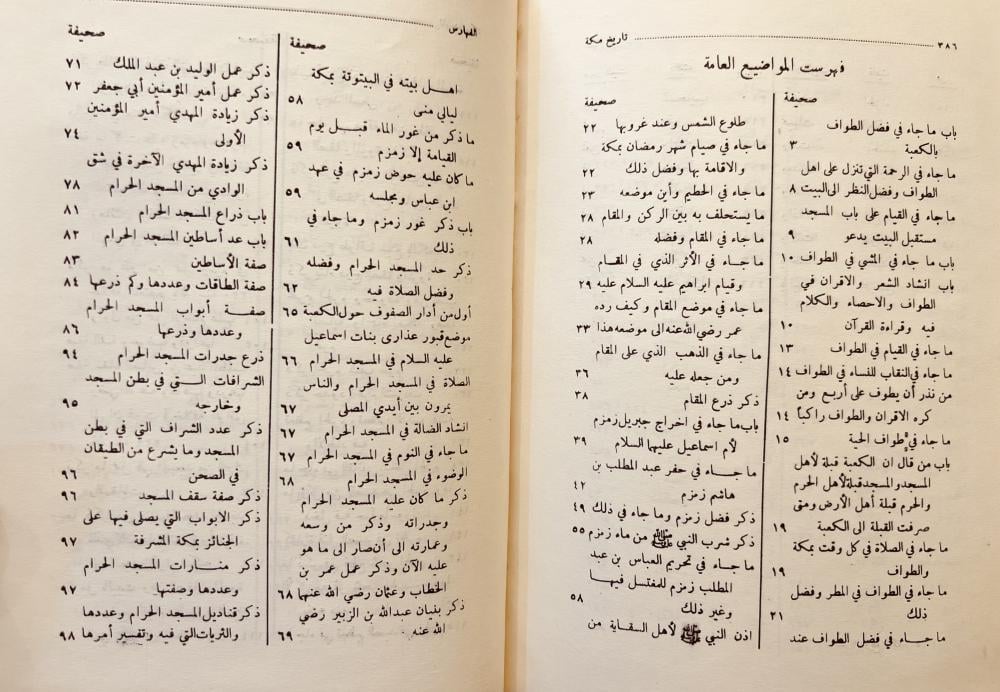 ٣٨٦ تاريخ مكة
فهرست المواضيع العامة
صحيفة
باب ما جاء في فضل الطواف
بالكعبة ٣
ما جاء في الرحمة التي تنزل على اهل
الطواف وفضل النظر الى البيت ٨
ما جاء في القيام على باب المسجد
مستقبل البيت يدعو ٩
باب ما جاء في المشي في الطواف ١٠
باب انشاد الشعر والاقران في
الطواف والاحصاء والكلام
فيه وقراءة القرآن ١٠
ما جاء في القيام في الطواف ١٣
ما جاء في النقاب للنساء في الطواف ١٤
من نذر أن يطوف على أربع ومن
كره الاقران والطواف راكباً ١٤
ما جاء في طواف الحية ١٥
باب من قال ان الكعبة قبلة لأهل
المسجد والمسجد قبلة لأهل الحرم
والحرم قبلة أهل الأرض ومتى
صرفت القبلة الى الكعبة ١٩
ما جاء في الصلاة في كل وقت بمكة
والطواف ١٩
ما جاء في الطواف في المطر وفضل
ذلك ٢١
ما جاء في فضل الطواف عند
صحيفة
طلوع الشمس وعند غروبها ٢٢
ما جاء في صيام شهر رمضان بمكة
والاقامة بها وفضل ذلك ٢٢
ما جاء في الحطيم وأين موضعه ٢٣
ما يستحلف به بين الركن والمقام ٢٨
ما جاء في المقام وفضله ٢٨
ما جاء في الأثر الذي في المقام
وقيام ابراهيم عليه السلام عليه ٢٩
ما جاء في موضع المقام وكيف رده
عمر رضي الله عنه الى موضعه هذا ٣٣
ما جاء في الذهب الذي على المقام
ومن جعله عليه ٣٦
ذكر ذرع المقام ٣٨
باب ما جاء في اخراج جبريل زمزم
لأم اسماعيل عليهما السلام ٣٩
ما جاء في حفر عبد المطلب بن
هاشم زمزم ٤٢
ذكر فضل زمزم وما جاء في ذلك ٤٩
ذكر شرب النبي ﷺ من ماء زمزم ٥٥
ما جاء في تحريم العباس بن عبد
المطلب زمزم للمفتسل فيها
وغير ذلك ٥٨
اذن النبي ﷺ لأهل السقاية من
الفهارس
صحيفة
اهل بيته في البيتوتة بمكة
ليالي منى ٥٨
ما ذكر من غور الماء قبل يوم
القيامة إلا زمزم ٥٩
ما كان عليه حوض زمزم في عهد
ابن عباس ومجلسه ٥٩
باب ذكر غور زمزم وما جاء في
ذلك ٦١
ذكر حد المسجد الحرام وفضله
وفضل الصلاة فيه ٦٢
أول من أدار الصفوف حول الكعبة ٦٥
موضع قبور عذارى بنات اسماعيل
عليه السلام في المسجد الحرام ٦٦
الصلاة في المسجد الحرام والناس
يمرون بين أيدي المصلى ٦٧
انشاد الضالة في المسجد الحرام ٦٧
ما جاء في النوم في المسجد الحرام ٦٧
الوضوء في المسجد الحرام ٦٨
ذكر ما كان عليه المسجد الحرام
وجدراته وذكر من وسعه
وعمارته الى أن صار الى ما هو
عليه الآن وذكر عمل عمر بن
الخطاب وعثمان رضي الله عنهما ٦٨
ذكر بنيان عبدالله بن الزبير رضي
الله عنه ٦٩
صحيفة
ذكر عمل الوليد بن عبد الملك ٧١
ذكر عمل أمير المؤمنين أبي جعفر ٧٢
ذكر زيادة المهدي أمير المؤمنين
الأولى ٧٤
ذكر زيادة المهدي الآخرة في شق
الوادي من المسجد الحرام ٧٨
باب ذراع المسجد الحرام ٨١
باب عد أساطين المسجد الحرام ٨٢
صفة الأساطين ٨٣
صفة الطاقات وعددها وكم ذرعها ٨٤
صفة أبواب المسجد الحرام
وعددها وذرعها ٨٦
ذرع جدرات المسجد الحرام ٩٤
الشرافات التي في بطن المسجد
وخارجه ٩٥
ذكر عدد الشراف التي في بطن
المسجد وما يشرع من الطيقان
في الصحن ٩٦
ذكر صفة سقف المسجد ٩٦
ذكر الابواب التي يصلى فيها على
الجنائز بمكة المشرفة ٩٧
ذكر منارات المسجد الحرام
وعددها وصفتها ٩٧
ذكر قناديل المسجد الحرام وعددها
والثريات التي فيه وتفسير أمرها ٩٨